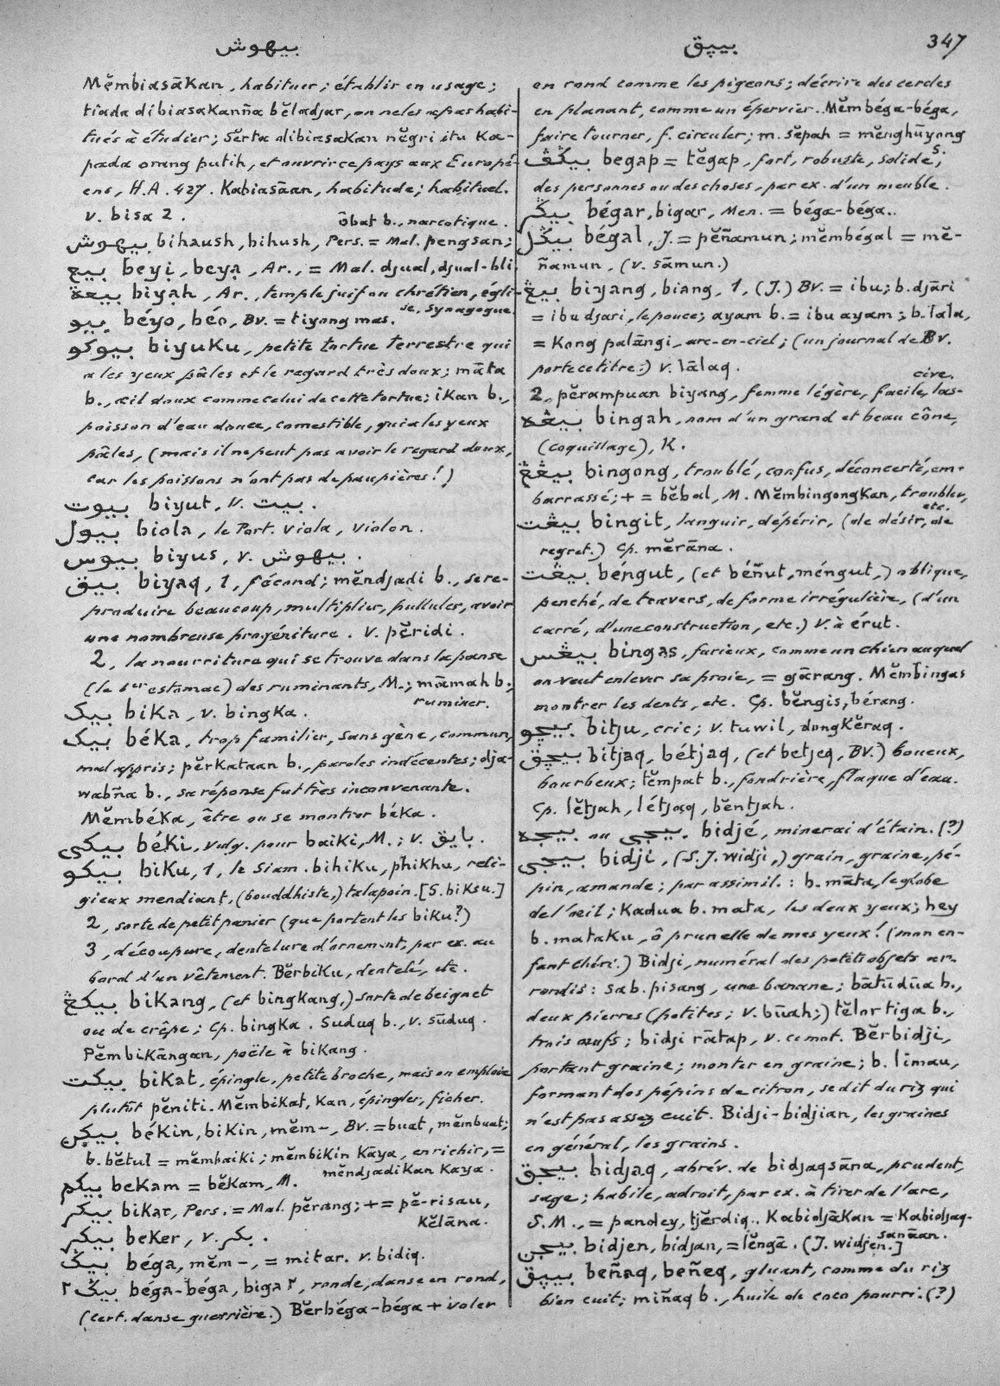 بيهوش
بيپق
347
Mĕmbiasākan, habituer; établir en usage;
tiada dibiasakanña bĕladjar, on ne les a pas habi-
tués à étudier; Sĕrta dibiasakan nĕgri itu Ka-
pada orang putih, et ouvrir ce pays aux Europé-
ens, H.A. 427. Kabiasāan, habitude; habituel.
v. bisa 2. ōbat b., narcotique.
بيهوش bihaush, bihush, Pers. = Mal. pengsan;
بيع beyi, beya, Ar., = Mal. djual, djual-bli
بيعة biyah, Ar., temple juif ou chrétien, égli-
se, Synagogue.
بيو béyo, béo, Bv. = tiyong mas.
بيوكو biyuku, petite tortue terrestre qui
a les yeux pâles et le regard très doux; māta
b., œil doux comme celui de cette tortue; iKan b.,
poisson d'eau douce, comestible, qui a les yeux
pâles, (mais il ne peut pas avoir le regard doux,
car les poissons n'ont pas de paupières!)
بيوت biyut, v. بيت.
بيول biola, le Port. viola, violon.
بيوس biyus, v. بيهوش.
بيق biyaq, 1, fécond; mĕndjadi b., se re-
produire beaucoup, multiplier, pulluler, avoir
une nombreuse progéniture. v. pĕridi.
2, la nourriture qui se trouve dans la panse
(le 1er estomac) des ruminants, M.; māmah b.,
ruminer.
بيک bika, v. bingka.
بيک béka, trop familier, sans gène, commun,
mal appris; pĕrkataan b., paroles indécentes; dja-
wabña b., sa réponse fut très inconvenante.
Mĕmbéka, être ou se montrer béka.
بيكي béki, vulg. pour baiki, M.; v. بايق.
بيكو biku, 1, le Siam. bihiku, phikhu, reli-
gieux mendiant, (bouddhiste,) talapoin. [S. biksu.]
2, sorte de petit panier (que portent les biku?)
3, découpure, dentelure d'ornement, par ex. au
bord d'un vêtement. Bĕrbiku, dentelé, etc.
بيكڠ bikang, (et bingkang,) sorte de beignet
ou de crêpe; Cp. bingka. Suduq b., v. sūduq.
Pĕmbikāngan, poële à bikang.
بيكت bikat, épingle, petite broche, mais on emploie
plutôt pĕniti. Mĕmbikat, kan, épingler, ficher.
بيكن békin, bikin, mĕm-, Bv. = buat, mĕmbuat;
b. bĕtul = mĕmbaiki; mĕmbikin Kāya, enrichir, =
mĕndjadikan Kaya.
بيكم bekam = bĕkam, M.
بيكر bikar, Pers. = Mal. pĕrang; + = pĕ-risau,
Kĕlāna.
بيكر beker, v. بكر.
بيݢ béga, mĕm-, = mitar. v. bidiq.
بيݢ٢ béga-béga, biga٢, ronde, danse en rond,
(cert. danse guerrière.) Bĕrbéga-béga + voler
en rond comme les pigeons; décrire des cercles
en planant, comme un épervier. Mĕmbéga-béga,
faire tourner, f. circuler; m. sĕpah = mĕnghūyong
بيݢڤ begap = tĕgap, fort, robuste, solide; S;
des personnes ou des choses, par ex. d'un meuble.
بيݢر bégar, bigar, Men. = béga-béga..
بيݢل bégal, J. = pĕñamun; mĕmbégal = mĕ-
ñamun, (v. sāmun.)
بيڠ biyang, biang, 1, (J.) Bv. = ibu; b. djāri
= ibu djari, le pouce; ayam b. = ibu ayam; b. lala,
= Kong palāngi, arc-en-ciel; (un journal de Bv.
porte ce titre.) v. lālaq.
2, pĕrampuan biyang, femme légère, facile, las-
cive.
بيڠه bingah, nom d'un grand et beau cône,
(coquillage), K.
بيڠڠ bingong, troublé, confus, déconcerté, em-
barrassé; + = bĕbal, M. Mĕmbingongkan, troubler,
etc.
بيڠت bingit, languir, dépérir, (de désir, de
regret.) Cp. mĕrāna.
بيڠت béngut, (et béñut, méngut,) oblique,
penché, de travers, de forme irrégulière, (d'un
carré, d'une construction, etc.) V. à érut.
بيڠس bingas, furieux, comme un chien auquel
on veut enlever sa proie, = gārang. Mĕmbingas
montrer les dents, etc. Cp. bĕngis, bérang.
بيچو bitju, cric; v. tuwil, dongkĕraq.
بيچق bitjaq, bétjaq, (et betjeq, Bv.) boueux,
bourbeux; tĕmpat b., fondrière, flaque d'eau.
Cp. lĕtjah, létjaq, bĕntjah.
بيجه ou بيجي bidjé, minerai d'étain. (?)
بيجي bidji, (S. J. widji,) grain, graine, pé-
pin, amande; par assimil.: b. māta, le globe
de l'œil; Kadua b. mata, les deux yeux; hey
b. mataku, ô prunelle de mes yeux! (mon en-
fant chéri.) Bidji, numéral des petits objets ar-
rondis: sa b. pisang, une banane; bātū dūa b.,
deux pierres (petites; v. būah;) tĕlor tiga b.,
trois œufs; bidji rātap, v. ce mot. Bĕrbidji,
portant graine; monter en graine; b. līmau,
formant des pépins de citron, se dit du riz qui
n'est pas assez cuit. Bidji-bidjian, les graines
en général, les grains.
بيجق bidjaq, abrév. de bidjaqsāna, prudent,
sage; habile, adroit, par ex. à tirer de l'arc,
S.M., = pandey, tjĕrdiq. Kabidjākan = Kabidjaq-
sanāan.
بيجن bidjen, bidjan, = lĕngā. (J. widjen.]
بيڽق beñaq, beñeq, gluant, comme du riz
bien cuit; miñaq b., huile de coco pourri. (?)